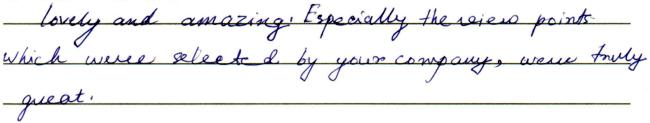 lovely and amazing. Especially the view points
which were selected by your company, were truly
great.